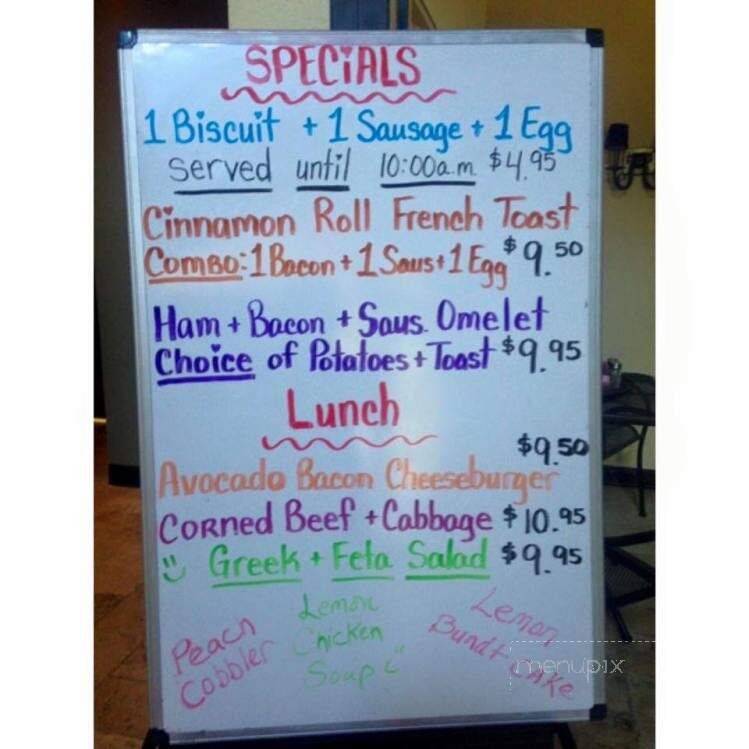 SPECiALS
1 Biscuit + 1 Sausage + 1 Egg
served until 10:00a.m. $4.95
Cinnamon Roll French Toast
Combo: 1 Bacon + 1 Saus + 1 Egg $9.50
Ham + Bacon + Saus. Omelet
Choice of Potatoes + Toast $9.95
Lunch
$9.50
Avocado Bacon Cheeseburger
Corned Beef + Cabbage $10.95
Greek + Feta Salad $9.95
Peach
Cobbler
Lemon
Chicken
Soup
Lemon
Bundt Cake
menupix